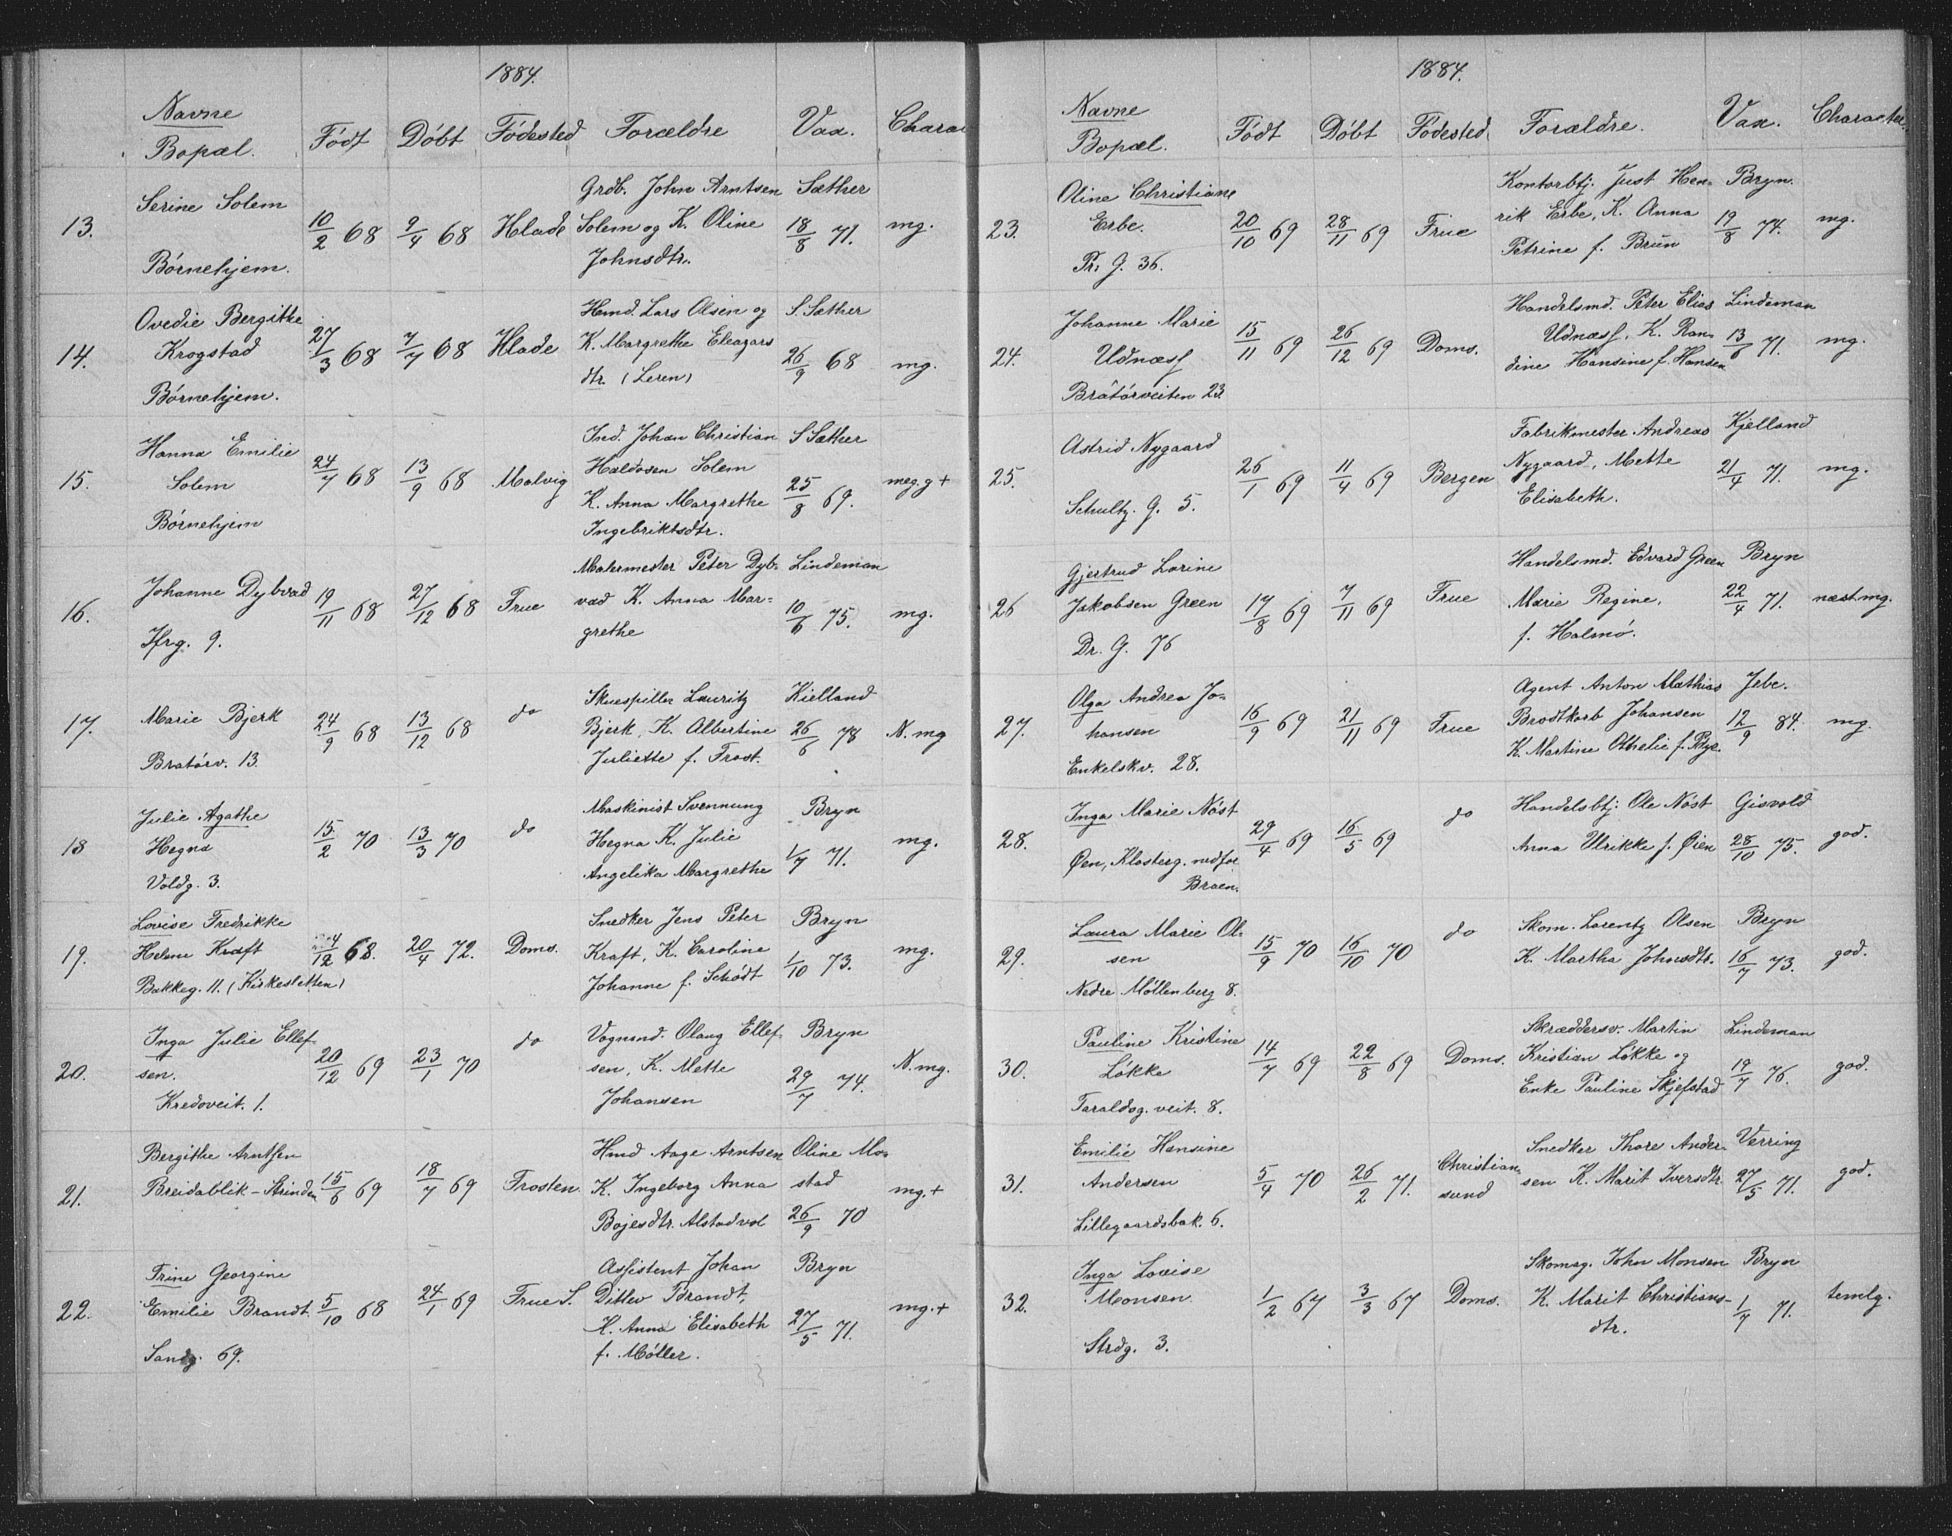 1884.
Navne
Bopæl. Født Døbt Fødested Forældre Vax. Charac
13. Serine Solem
Børnehjem. 10/2 68 9/4 68 Hlade
Grdb. John Arntsen
Solem og K. Oline
Johnsdtr.
Sæther
18/8 71. mg.
14. Ovedie Bergitte
Krogstad
Børnehjem. 27/3 68 7/7 68 Hlade
Hmd. Lars Olsen og
K. Margrethe Eleazars
dtr. (Leren)
S. Sæther
26/9 68 mg.
15. Hanna Emilie
Solem
Børnehjem 24/7 68 13/9 68 Malvig
Ind. Johan Christian
Haldosen Solem
K. Anna Margrethe
Ingebriktsdtr.
S Sæther
25/8 69. meg. g +
16. Johanne Dybvad
Ifrg. 9. 19/11 68 27/12 68 Frue
Malermester Peter Dyb-
vad K. Anna Mar-
grethe
Lindeman
10/6 75. mg.
17. Marie Bjerk
Bratørv. 13. 24/9 68 13/12 68 do
Skuespiller Lauritz
Bjerk, K. Albertine
Juliette f. Frost.
Kielland
26/6 78 N. mg
18 Julie Agathe
Hegna
Voldg. 3. 15/2 70 13/3 70 do
Maskinist Svennung
Hegna K. Julie
Angelika Margrethe
Bryn
1/7 71. mg.
19. Lovise Fredrikke
Helene Kraft
Bakkeg. 11. (Kirkesletten) 4/12 68. 20/4 72. Doms.
Snedker Jens Peter
Kraft, K. Caroline
Johanne f. Schødt
Bryn
1/10 73. mg.
20. Inga Julie Ellef-
sen.
Kredoveit. 1. 20/12 69 23/1 70 do
Vognmd. Olaug Ellef-
sen, K. Mette
Johansen
Bryn
29/7 74. N. mg.
21. Bergithe Arntsen
Breidablik - Strinden 15/6 69 18/7 69 Frosten
Hmd Aage Arntsen
K. Ingeborg Anna
Bojesdtr. Alstadvol
Oline Mo-
stad
26/9 70 mg. +
22. Trine Georgine
Emilie Brandt.
Sandg. 69. 5/10 68 24/1 69 Frue S.
Assistent Johan
Ditlev Brandt,
K. Anna Elisabeth
f. Møller.
Bryn
27/5 71. mg. +
1884.
Navne
Bopæl. Født Døbt Fødested. Forældre. Vax. Character.
23. Oline Christiane
Erbe.
Pr. G. 36. 20/10 69 28/11 69 Frue
Kontorbtj. Just Hen-
rik Erbe, K. Anna
Petrine f. Brun
Bryn.
19/8 74. mg.
24. Johanne Marie
Udnæss
Bratørveiten 23. 15/11 69 26/12 69 Doms.
Handelsmd. Peter Elias
Udnæss, K. Ran-
dine Hansine f. Hansen
Lindeman
13/6 71. mg.
25. Astrid Nygaard
Schultz. G. 5. 26/1 69 11/4 69 Bergen
Fabrikmester Andreas
Nygaard, Mette
Elisabeth.
Kjelland
21/4 71. mg.
26 Gjertrud Lorine
Jakobsen Green
Dr. G. 76 17/8 69 7/11 69 Frue
Handelsmd. Edvard Green
Marie Regine,
f. Holmø.
Bryn
22/4 71. næst. mg.
27. Olga Andrea Jo-
hansen
Enkelskv. 28. 16/9 69 21/11 69 Frue
Agent Anton Mathias
Brodtkorb Johansen
K. Martine Othelie f. Rye.
Jebe.
12/9 84. mg.
28. Inga Marie Nøst
Øen, Klosterg. nedfor
Broen. 29/4 69 16/5 69 do
Handelsbtj. Ole Nøst
Anna Ulrikke f. Øien
Gisvold
28/10 75. god.
29. Laura Marie Ol-
sen
Nedre Møllenberg 8. 15/9 70 16/10 70 do
Skom. Lorentz Olsen
K. Martha Johnsdtr.
Bryn
16/7 73. god.
30. Pauline Kristine
Løkke
Taraldsg. veit. 8. 14/7 69 22/8 69 Doms.
Skræddersv. Martin
Kristian Løkke og
Enke Pauline Skjefstad
Lindeman
19/7 76. god.
31. Emilie Hansine
Andersen
Lillegaardsbak. 6. 5/4 70 26/2 71. Christian-
sund
Snedker Thore Ander-
sen K. Marit Iversdtr.
Verring
27/5 71. god.
32. Inga Lovise
Monsen
Strdg. 3. 1/2 67 3/3 67 Doms.
Skomag. John Monsen
K. Marit Christians-
dtr.
Bryn
1/7 71. temlg.